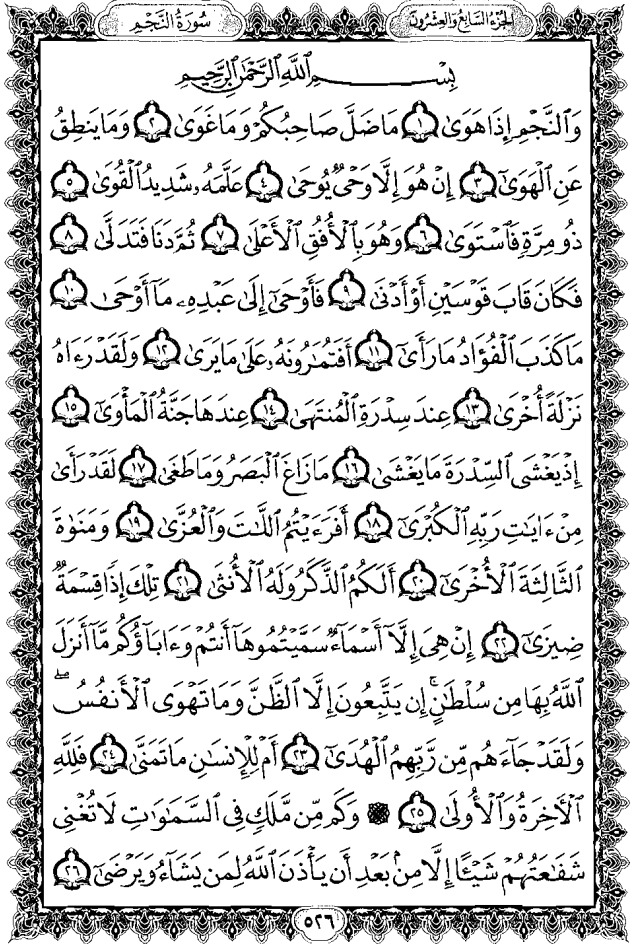 الجزء السابع والعشرون
سورة النجم
بِسْمِ ٱللَّهِ ٱلرَّحْمَٰنِ ٱلرَّحِيمِ
وَٱلنَّجْمِ إِذَا هَوَىٰ ١ مَا ضَلَّ صَاحِبُكُمْ وَمَا غَوَىٰ ٢ وَمَا يَنطِقُ
عَنِ ٱلْهَوَىٰٓ ٣ إِنْ هُوَ إِلَّا وَحْىٌ يُوحَىٰ ٤ عَلَّمَهُۥ شَدِيدُ ٱلْقُوَىٰ ٥
ذُو مِرَّةٍ فَٱسْتَوَىٰ ٦ وَهُوَ بِٱلْأُفُقِ ٱلْأَعْلَىٰ ٧ ثُمَّ دَنَا فَتَدَلَّىٰ ٨
فَكَانَ قَابَ قَوْسَيْنِ أَوْ أَدْنَىٰ ٩ فَأَوْحَىٰٓ إِلَىٰ عَبْدِهِۦ مَآ أَوْحَىٰ ١٠
مَا كَذَبَ ٱلْفُؤَادُ مَا رَأَىٰٓ ١١ أَفَتُمَٰرُونَهُۥ عَلَىٰ مَا يَرَىٰ ١٢ وَلَقَدْ رَءَاهُ
نَزْلَةً أُخْرَىٰ ١٣ عِندَ سِدْرَةِ ٱلْمُنتَهَىٰ ١٤ عِندَهَا جَنَّةُ ٱلْمَأْوَىٰٓ ١٥
إِذْ يَغْشَى ٱلسِّدْرَةَ مَا يَغْشَىٰ ١٦ مَا زَاغَ ٱلْبَصَرُ وَمَا طَغَىٰ ١٧ لَقَدْ رَأَىٰ
مِنْ ءَايَٰتِ رَبِّهِ ٱلْكُبْرَىٰٓ ١٨ أَفَرَءَيْتُمُ ٱللَّٰتَ وَٱلْعُزَّىٰ ١٩ وَمَنَوٰةَ
ٱلثَّالِثَةَ ٱلْأُخْرَىٰٓ ٢٠ أَلَكُمُ ٱلذَّكَرُ وَلَهُ ٱلْأُنثَىٰ ٢١ تِلْكَ إِذًا قِسْمَةٌ
ضِيزَىٰٓ ٢٢ إِنْ هِىَ إِلَّآ أَسْمَآءٌ سَمَّيْتُمُوهَآ أَنتُمْ وَءَابَآؤُكُم مَّآ أَنزَلَ
ٱللَّهُ بِهَا مِن سُلْطَٰنٍ ۚ إِن يَتَّبِعُونَ إِلَّا ٱلظَّنَّ وَمَا تَهْوَى ٱلْأَنفُسُ ۖ
وَلَقَدْ جَآءَهُم مِّن رَّبِّهِمُ ٱلْهُدَىٰٓ ٢٣ أَمْ لِلْإِنسَٰنِ مَا تَمَنَّىٰ ٢٤ فَلِلَّهِ
ٱلْءَاخِرَةُ وَٱلْأُولَىٰ ٢٥ ۞ وَكَم مِّن مَّلَكٍ فِى ٱلسَّمَٰوَٰتِ لَا تُغْنِى
شَفَٰعَتُهُمْ شَيْـًٔا إِلَّا مِنۢ بَعْدِ أَن يَأْذَنَ ٱللَّهُ لِمَن يَشَآءُ وَيَرْضَىٰٓ ٢٦
٥٢٦